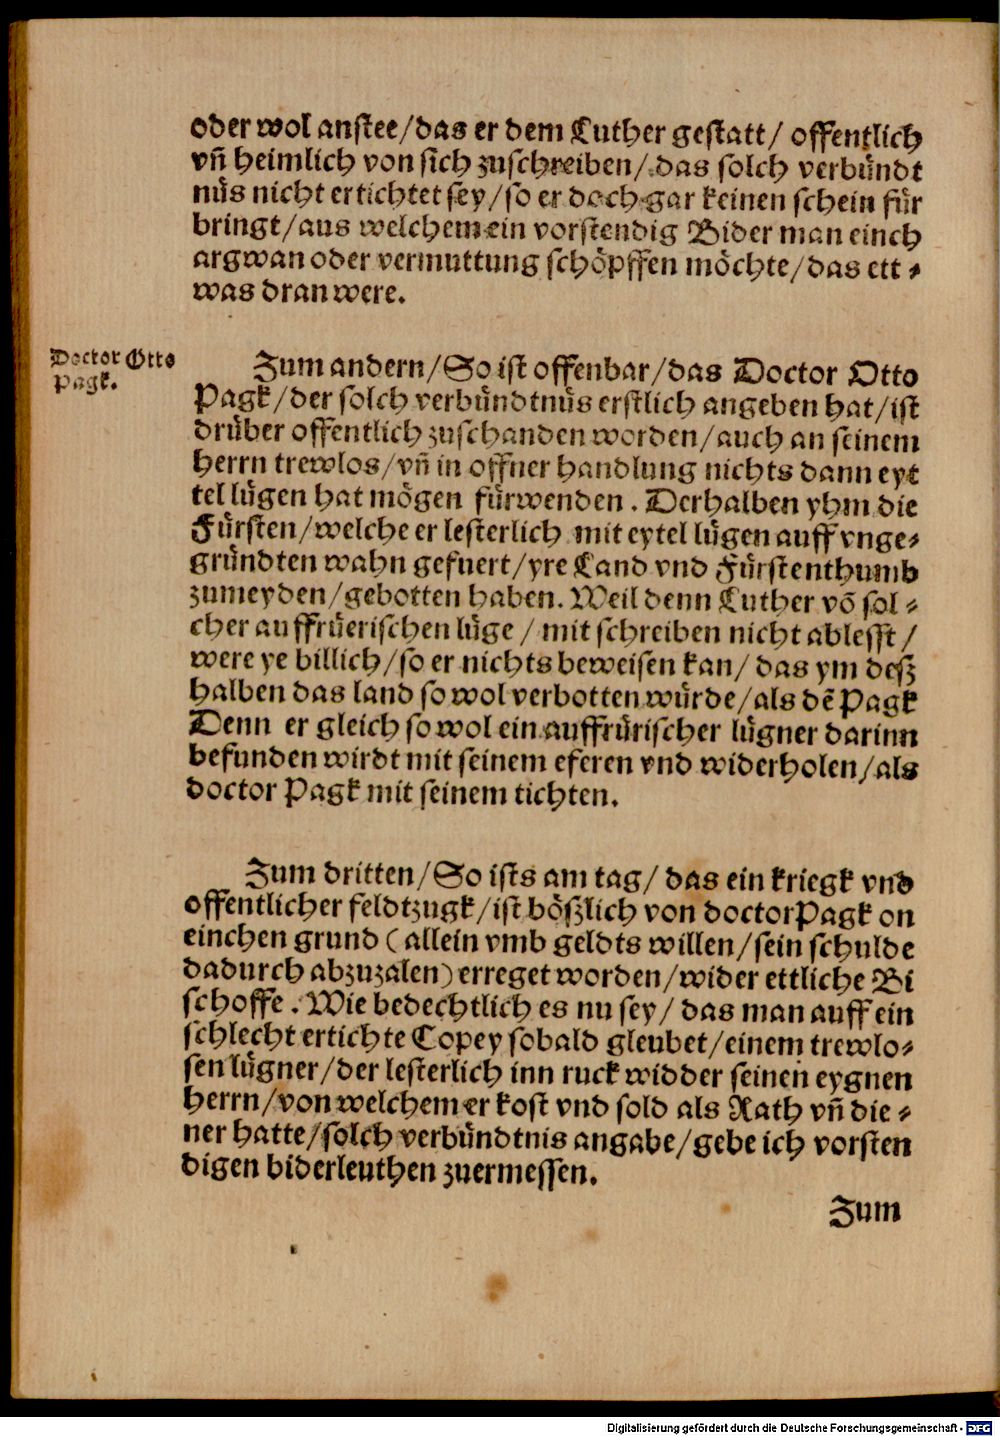 oder wol anstee/das er dem Luther gestatt/ offentlich
vñ heimlich von sich zuschreiben/ das solch verbündt
nüs nicht ertichtet sey/so er doch gar keinen schein für
bringt/aus welchem ein vorstendig Bider man einch
argwan oder vermuttung schöpffen möchte/das ett⸗
was dran were.
Doctor Otto
Pagk.
Zum andern/So ist offenbar/das Doctor Otto
Pagk/der solch verbündtnüs erstlich angeben hat/ist
drüber offentlich zuschanden worden/auch an seinem
herrn trewlos/vñ in offner handlung nichts dann eyt
tel lügen hat mögen fürwenden. Derhalben yhm die
Fürsten/welche er lesterlich mit eytel lügen auff vnge⸗
gründten wahn gefuert/yre Land vnd Fürstenthumb
zumeyden/gebotten haben. Weil denn Luther võ sol⸗
cher auffrüerischen lüge/ mit schreiben nicht ablesst/
were ye billich/so er nichts beweisen kan/ das ym desz
halben das land so wol verbotten würde/als dẽ Pagk
Denn er gleich so wol ein auffrürischer lügner darinn
befunden wirdt mit seinem eferen vnd widerholen/als
doctor Pagk mit seinem tichten.
Zum dritten/So ists am tag/ das ein kriegk vnd
offentlicher feldtzugk/ist böszlich von doctor Pagk on
einchen grund (allein vmb geldts willen/sein schulde
dadurch abzuzalen) erreget worden/wider ettliche Bi
schoffe. Wie bedechtlich es nu sey/ das man auff ein
schlecht ertichte Copey sobald gleubet/einem trewlo⸗
sen lügner/der lesterlich inn ruck widder seinen eygnen
herrn/von welchem er kost vnd sold als Rath vñ die⸗
ner hatte/solch verbündtnis angabe/gebe ich vorsten
digen biderleuthen zuermessen.
Zum
Digitalisierung gefördert durch die Deutsche Forschungsgemeinschaft - DFG